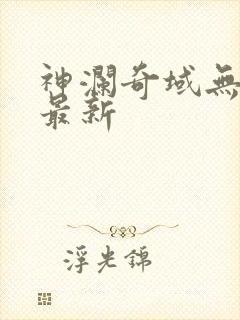 神瀾奇域無
最新
浮光錦